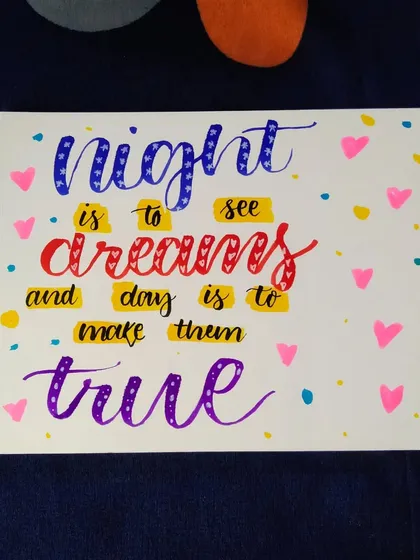 night
is to see
dreams
and day is to
make them
true